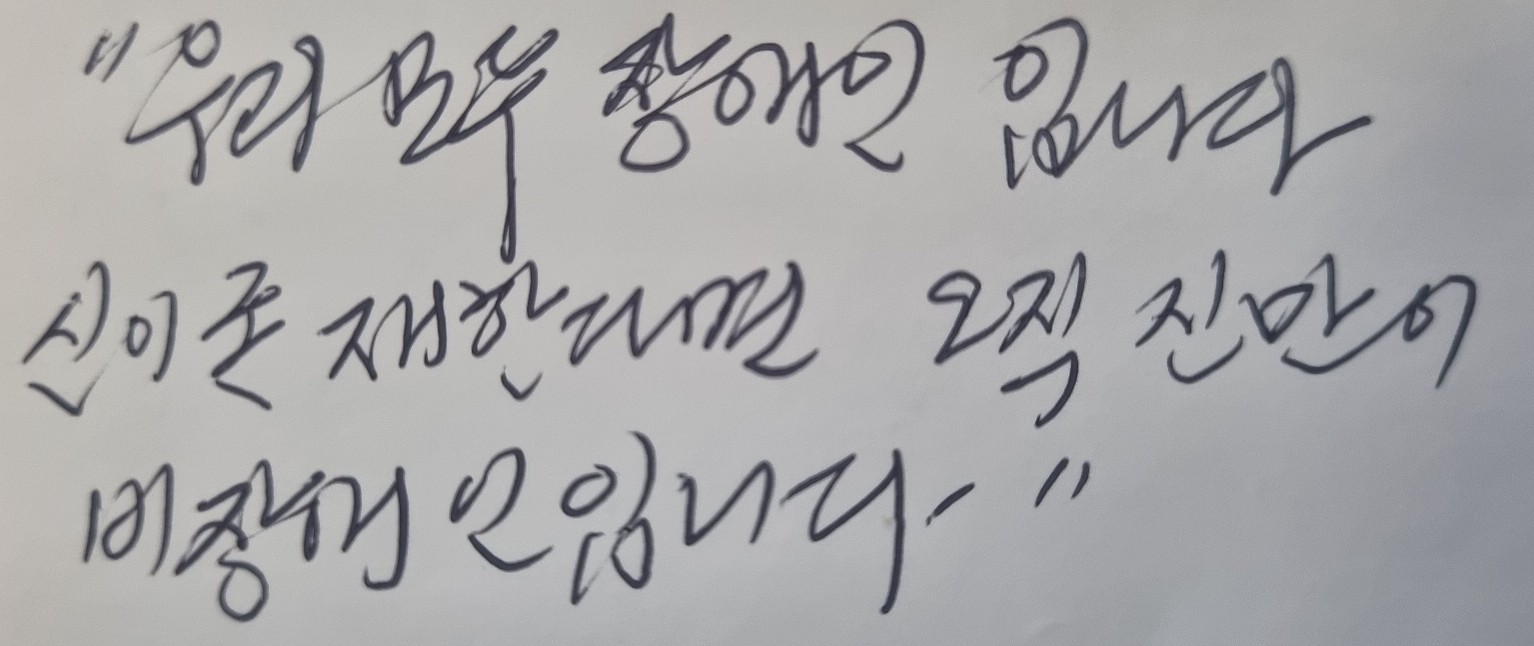 "우리 모두 장애인 입니다
신이 존재한다면 오직 진만이
비장애인입니다."